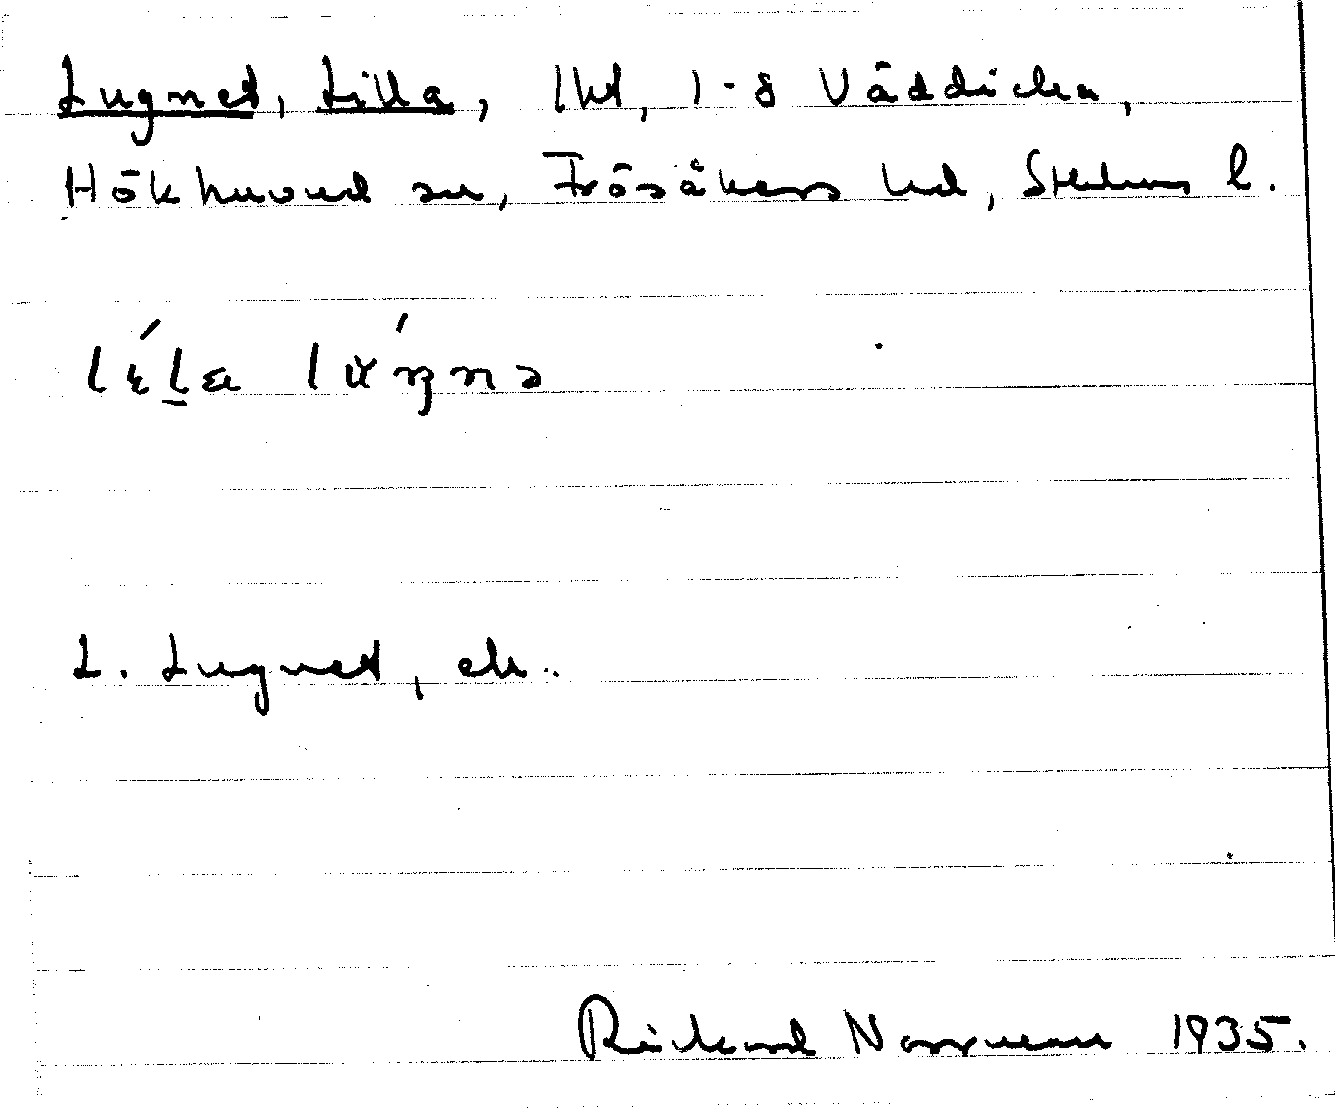 Lugnet, Lilla, lht, 1-8 Väddika,
Hökhuvud sn, Frösåkers hd, Sthlms l.
L. Lugnet, ek.
Rickard Norrman 1935.